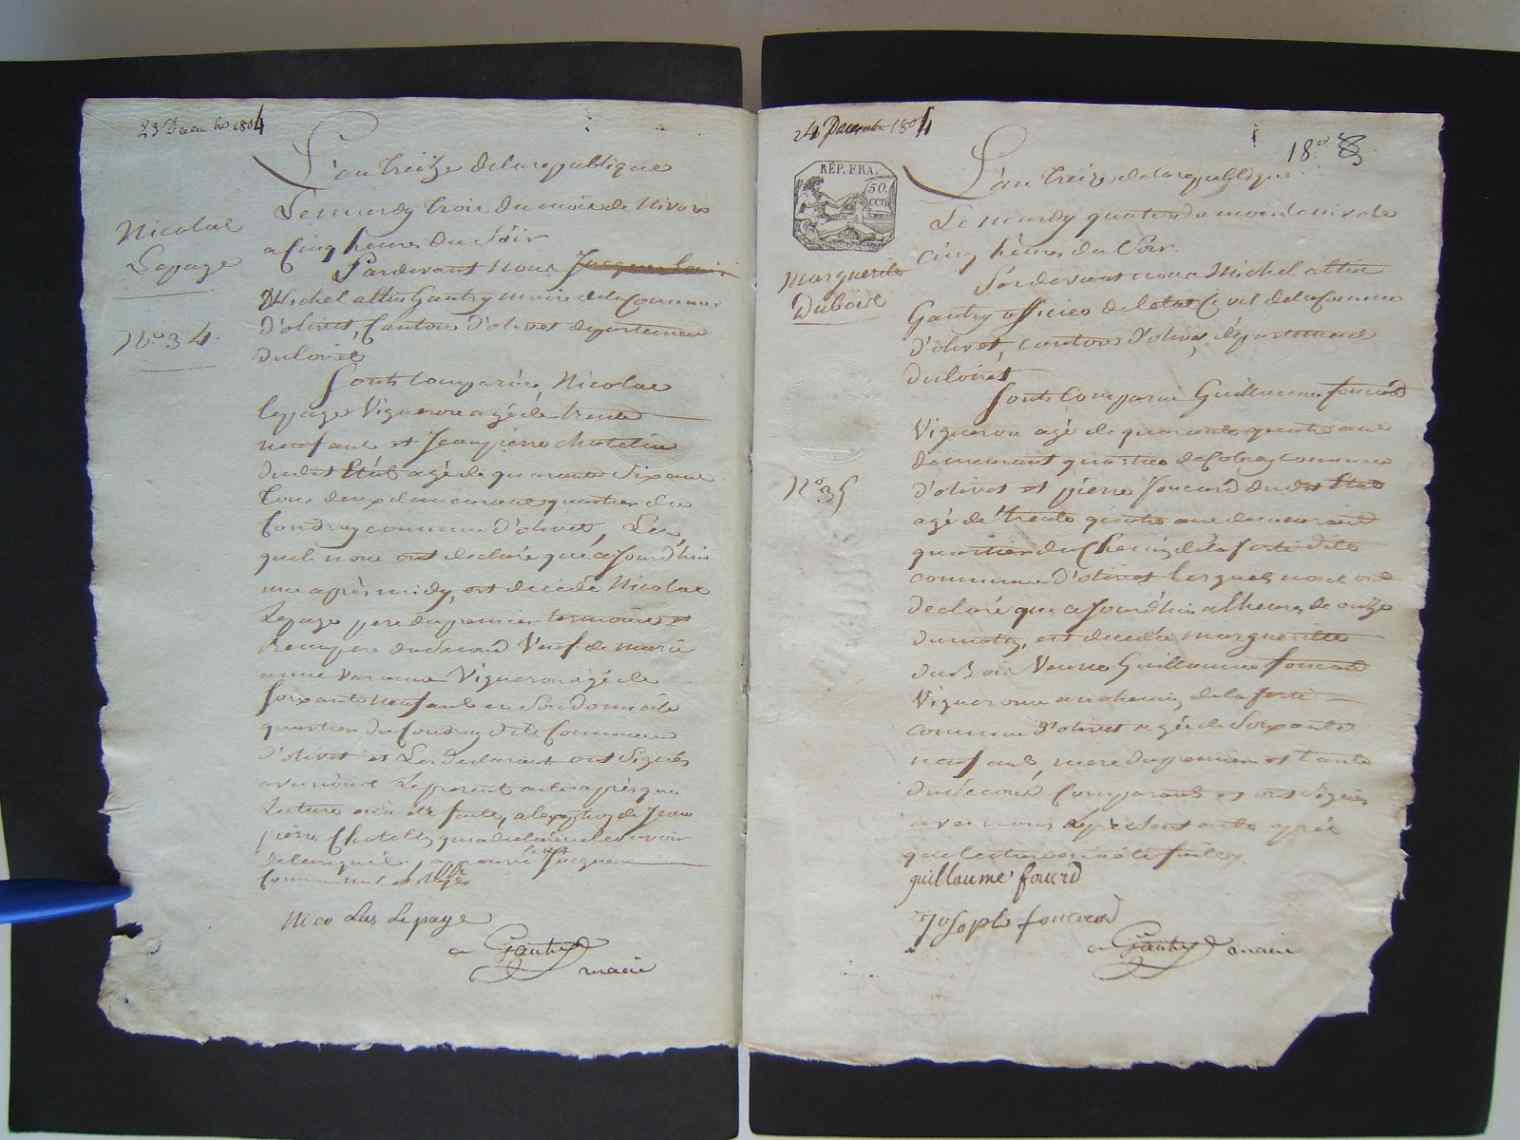 23 Decembre 1804
L'an treize de la republique
Le mardy trois du mois de Nivose
a Cinq heures du Soir
Nicolas
Lepage
N.o 34.
Pardevant nous
Michel altin Gautry maire de la Commune
D'olivet, Canton d'olivet departement
du loiret
Sont Comparus Nicolas
lepage Vigneron agé de trente
neuf ans et Jean pierre chatelin
dudit Etat agé de quarante Six ans
tous deux demeurans quartier du
Coudray commune d'olivet, Les
quel nous ont declaré que ce Jourd'huis
une après midy, est decedé Nicolas
Lepage pere du premier
Beaupere du Second Veuf de marie
anne Vigneron agé de
soixante neuf ans en Son domicile
quartier du Coudray dite Commune
d'olivet et Les declarant ont Signés
avec nous Le present acte après que
Lecture a été faite, a l'exception de Jean
pierre Chatelin qui a declaré ne Savoir
Nicolas Lepage
Gautry
maire
24 Decembre 1804
18
RÉP. FRA.
50.
L'an treize de la republique
Le mardy quatre du mois de nivose
Cinq heures du Soir
Marguerite
Dubois
N.o 35
Pardevant nous Michel altin
Gautry officier de l'etat Civil de la Commune
d'olivet, canton d'olivet, departement
du loiret
Sont Comparus Guillaume foucard
Vigneron agé de quarante quatre ans
demeurant quartier de commune
d'olivet et pierre foucard dudit Etat
agé de trente quatre ans demeurant
quartier du Chemin de la ferté dite
commune d'olivet lesquels nous ont
declaré que ce Jourd'hui a l'heure de onze
du matin, est decedée margueritte
du Bois Veuve Guillaume foucard
Vigneronne au chemin de la ferté
commune d'olivet agée de Soixante
neuf ans, mere du premier et tante
du Second Comparants et ont Signés
avec nous le present acte après
que lecture a été faite
guillaume foucrd
Joseph foucard
Gautry maire